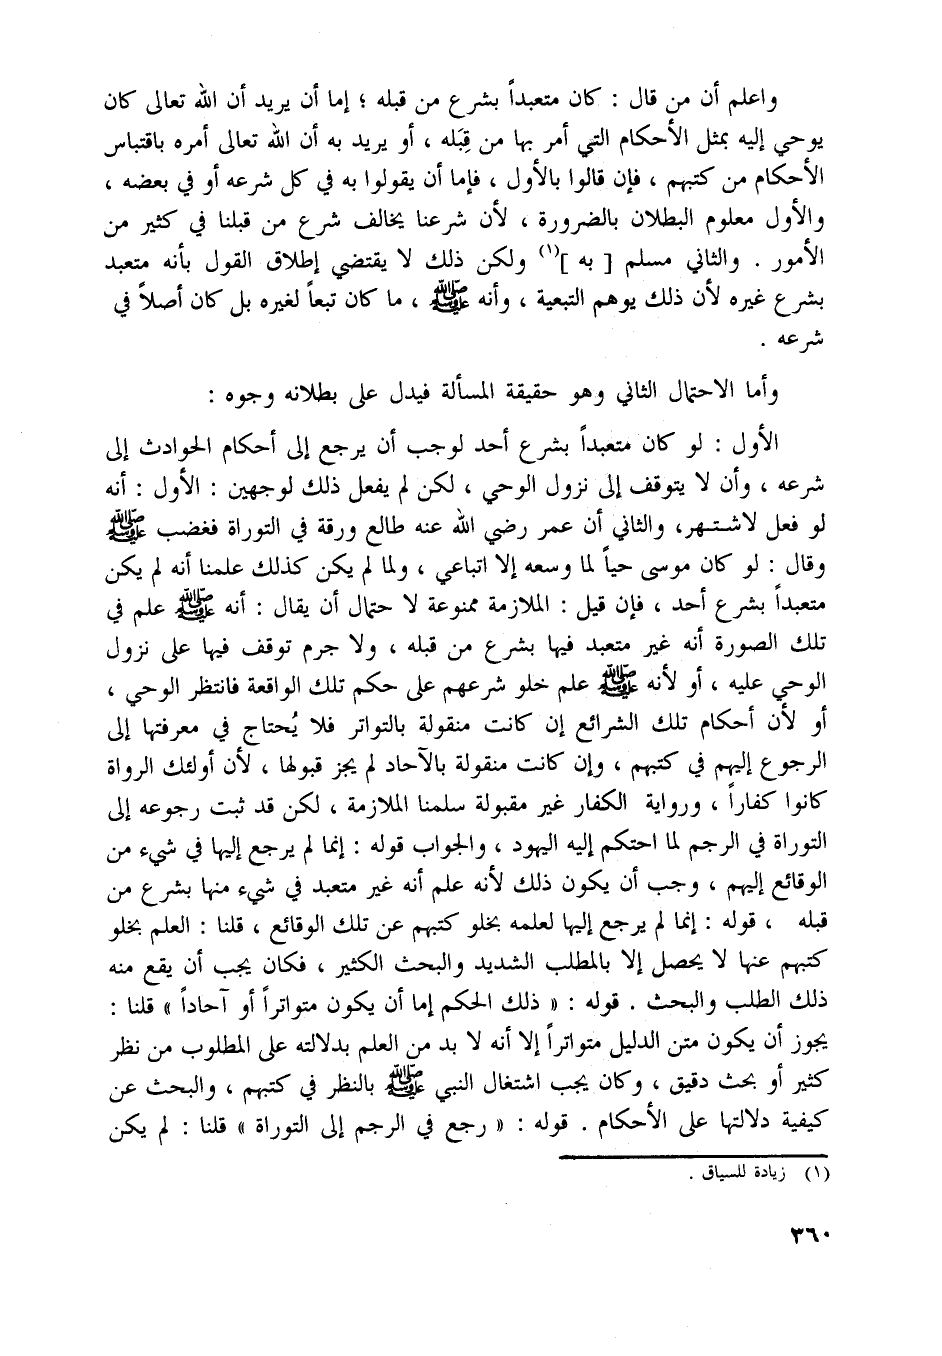 واعلم أن من قال : كان متعبداً بشرع من قبله ؛ إما أن يريد أن الله تعالى كان
يوحي إليه بمثل الأحكام التي أمر بها من قِبَله ، أو يريد به أن الله تعالى أمره باقتباس
الأحكام من كتبهم ، فإن قالوا بالأول ، فإما أن يقولوا به في كل شرعه أو في بعضه ،
والأول معلوم البطلان بالضرورة ، لأن شرعنا يخالف شرع من قبلنا في كثير من
الأمور . والثاني مسلم [ به ](١) ولكن ذلك لا يقتضي إطلاق القول بأنه متعبد
بشرع غيره لأن ذلك يوهم التبعية ، وأنه ﷺ ، ما كان تبعاً لغيره بل كان أصلاً في
شرعه .
وأما الاحتمال الثاني وهو حقيقة المسألة فيدل على بطلانه وجوه :
الأول : لو كان متعبداً بشرع أحد لوجب أن يرجع إلى أحكام الحوادث إلى
شرعه ، وأن لا يتوقف إلى نزول الوحي ، لكن لم يفعل ذلك لوجهين : الأول : أنه
لو فعل لاشتهر، والثاني أن عمر رضي الله عنه طالع ورقة في التوراة فغضب ﷺ
وقال : لو كان موسى حياً لما وسعه إلا اتباعي ، ولما لم يكن كذلك علمنا أنه لم يكن
متعبداً بشرع أحد ، فإن قيل : الملازمة ممنوعة لا حتمال أن يقال : أنه ﷺ علم في
تلك الصورة أنه غير متعبد فيها بشرع من قبله ، ولا جرم توقف فيها على نزول
الوحي عليه ، أو لأنه ﷺ علم خلو شرعهم على حكم تلك الواقعة فانتظر الوحي ،
أو لأن أحكام تلك الشرائع إن كانت منقولة بالتواتر فلا يُحتاج في معرفتها إلى
الرجوع إليهم في كتبهم ، وإن كانت منقولة بالآحاد لم يجز قبولها ، لأن أولئك الرواة
كانوا كفاراً ، ورواية الكفار غير مقبولة سلمنا الملازمة ، لكن قد ثبت رجوعه إلى
التوراة في الرجم لما احتكم إليه اليهود ، والجواب قوله : إنما لم يرجع إليها في شيء من
الوقائع إليهم ، وجب أن يكون ذلك لأنه علم أنه غير متعبد في شيء منها بشرع من
قبله ، قوله : إنما لم يرجع إليها لعلمه بخلو كتبهم عن تلك الوقائع ، قلنا : العلم بخلو
كتبهم عنها لا يحصل إلا بالمطلب الشديد والبحث الكثير ، فكان يجب أن يقع منه
ذلك الطلب والبحث . قوله : « ذلك الحكم إما أن يكون متواتراً أو آحاداً » قلنا :
يجوز أن يكون متن الدليل متواتراً إلا أنه لا بد من العلم بدلالته على المطلوب من نظر
كثير أو بحث دقيق ، وكان يجب اشتغال النبي ﷺ بالنظر في كتبهم ، والبحث عن
كيفية دلالتها على الأحكام . قوله : « رجع في الرجم إلى التوراة » قلنا : لم يكن
(١) زيادة للسياق .
٣٦٠